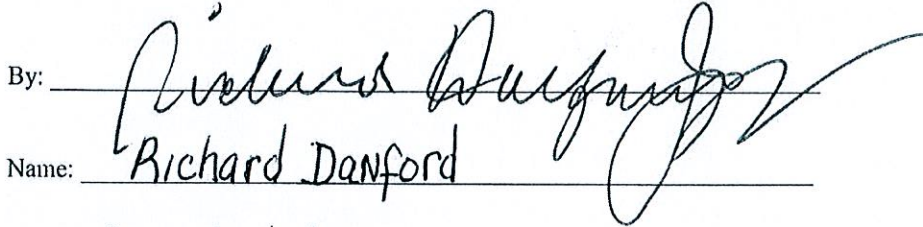 By: Richard Danford Jr
Name: Richard Danford